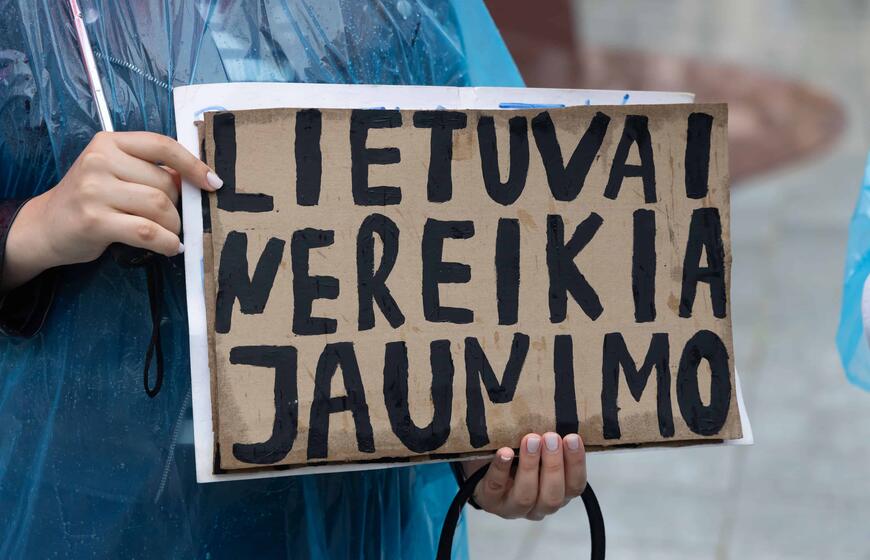 LIETUVAI
NEREIKIA
JAUNIMO